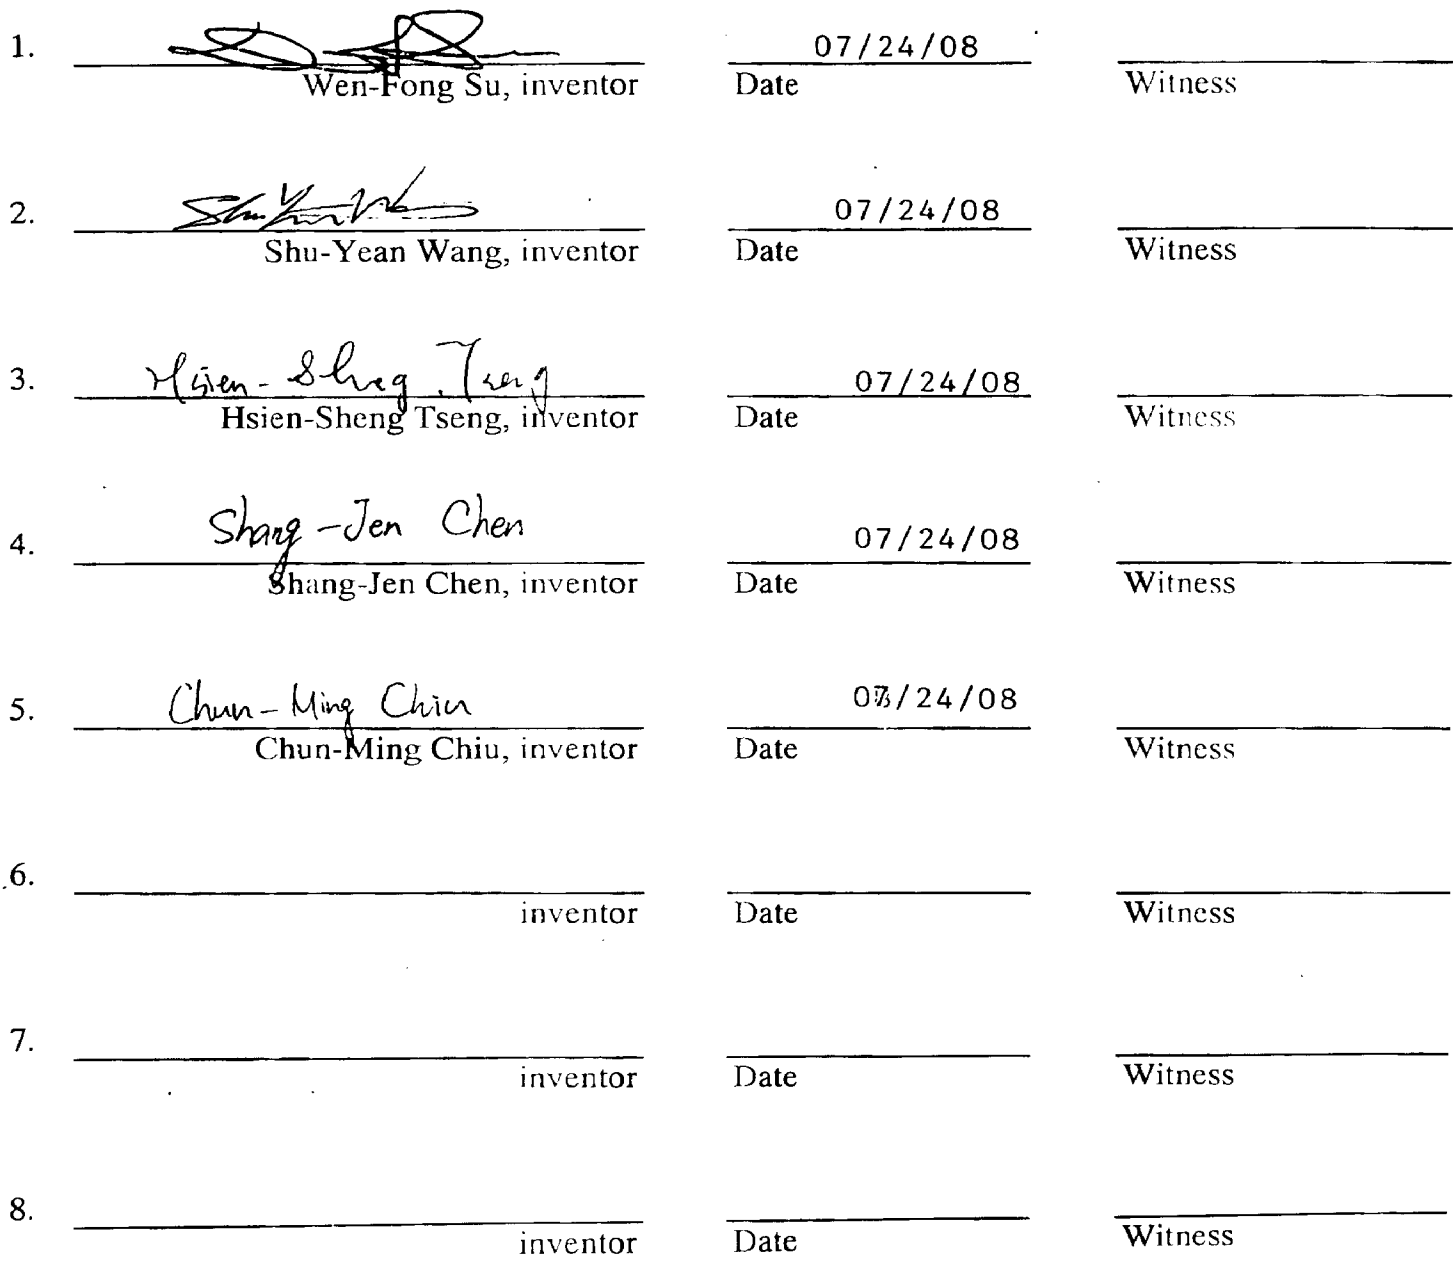 1. 07/24/08
Wen-Fong Su, inventor Date Witness
2. Shu Yean Wang 07/24/08
Shu-Yean Wang, inventor Date Witness
3. Hsien-Sheng Tseng 07/24/08
Hsien-Sheng Tseng, inventor Date Witness
4. Shang-Jen Chen 07/24/08
Shang-Jen Chen, inventor Date Witness
5. Chun-Ming Chiu 07/24/08
Chun-Ming Chiu, inventor Date Witness
6.
inventor Date Witness
7.
inventor Date Witness
8.
inventor Date Witness